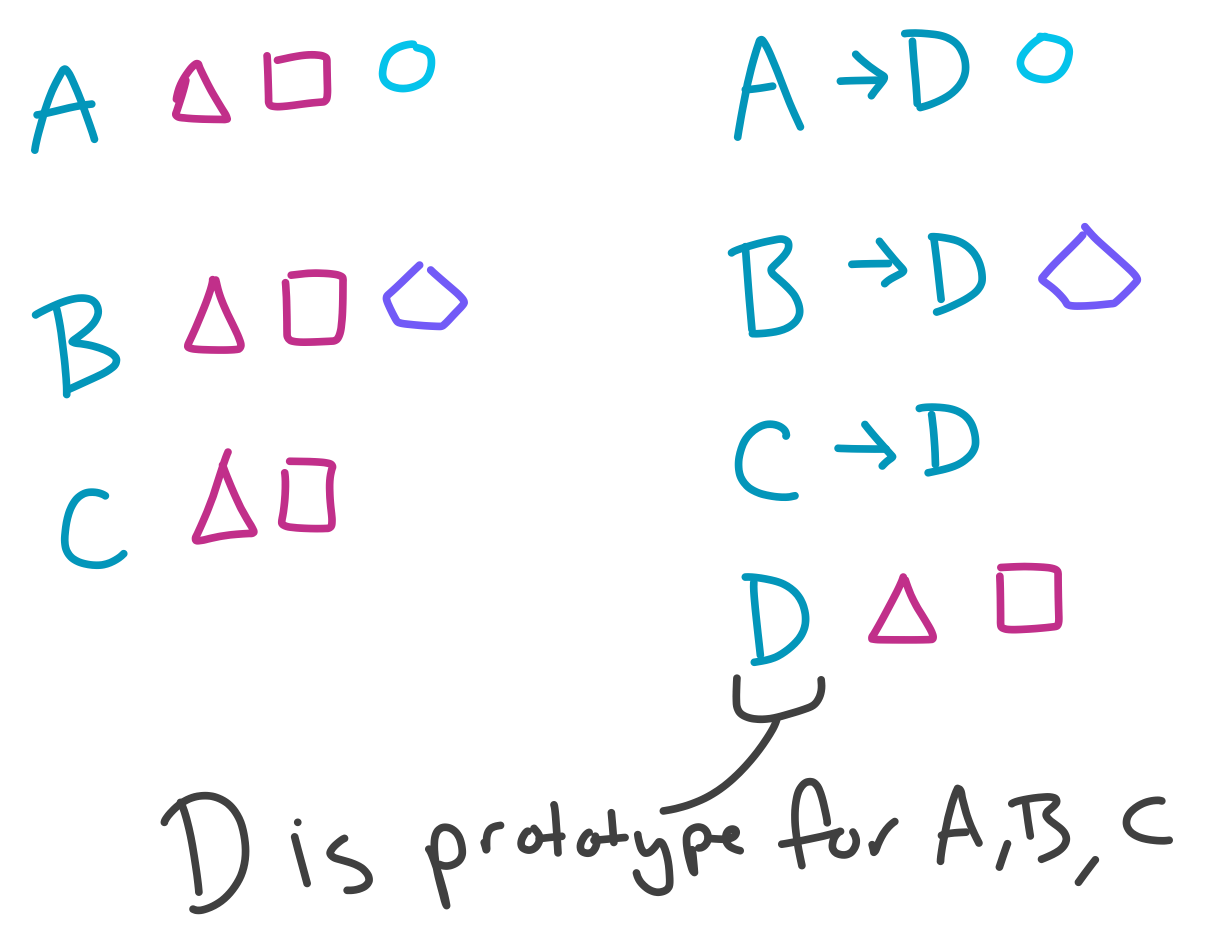 A
A → D
B
B → D
C
C → D
D
D is prototype for A, B, C